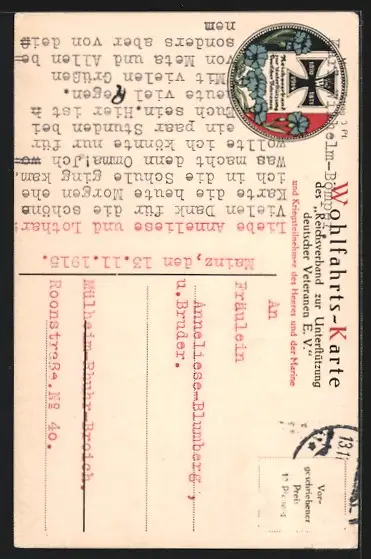 Wohlfahrts-Karte
des „Reichsverband zur Unterstützung
deutscher Veteranen E. V."
und Kriegsteilnehmer des Heeres und der Marine
Vor-
geschriebener
Preis
10 Pfennig
13.11
An
Fräulein
Anneliese-Blumberg,
u.Bruder.
Mülheim-Rhuhr-Broich.
Roonstraße.№ 40.
Mainz,den, 13.11.1915.
Liebe Anneliese und Lothar
Vielen Dank für die schöne
Karte die heute Morgen ehe
ich in die Schule ging kam,
was macht denn Omma!Ich
wollte ich könnte nur für
ein paar Stunden bei
Euch sein.Hier ist
heute viel Regen.
Mit vielen Grüßen
von Meta und Allen be
sonders aber von dei
nem